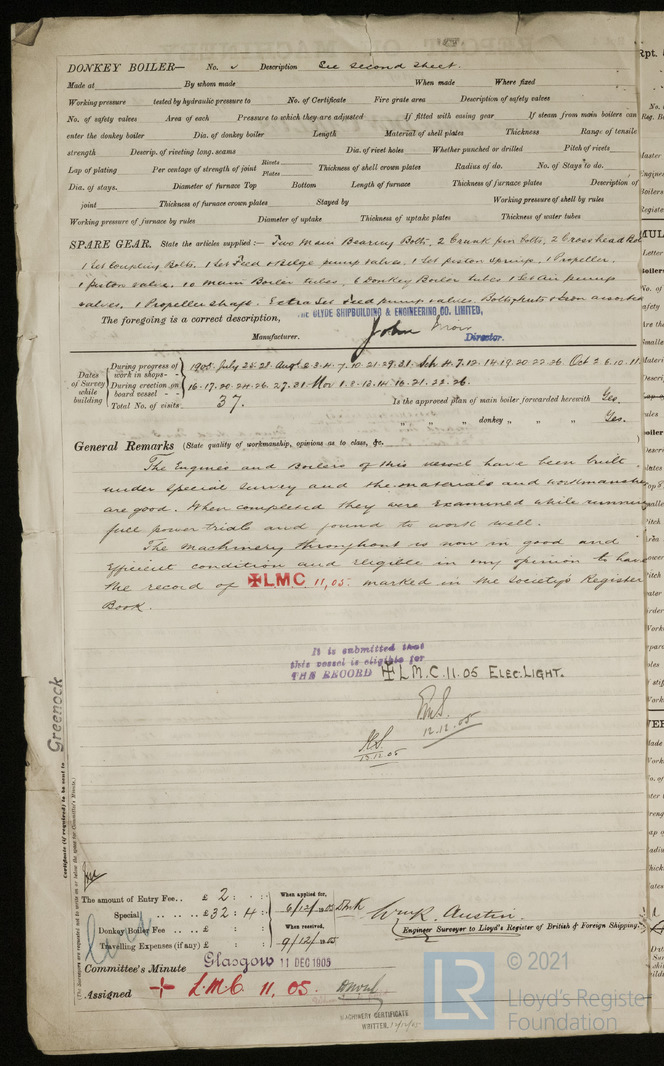 DONKEY BOILER— No. Description See second sheet.
Made at By whom made When made Where fixed
Working pressure tested by hydraulic pressure to No. of Certificate Fire grate area Description of safety valves
No. of safety valves Area of each Pressure to which they are adjusted If fitted with easing gear If steam from main boilers can
enter the donkey boiler Dia. of donkey boiler Length Material of shell plates Thickness Range of tensile
strength Descrip. of riveting long. seams Dia. of rivet holes Whether punched or drilled Pitch of rivets
Lap of plating Per centage of strength of joint Rivets Plates Thickness of shell crown plates Radius of do. No. of Stays to do.
Dia. of stays. Diameter of furnace Top Bottom Length of furnace Thickness of furnace plates Description of
joint Thickness of furnace crown plates Stayed by Working pressure of shell by rules
Working pressure of furnace by rules Diameter of uptake Thickness of uptake plates Thickness of water tubes
SPARE GEAR. State the articles supplied:— Two Main Bearing Bolts, 2 Crank pin bolts, 2 Crosshead Bol
1 Set Coupling Bolts. 1 Set Feed & Bilge pump valves. 1 Set piston springs. 1 Propeller.
1 piston valve. 10 Main Boiler tubes, 6 Donkey Boiler tubes 1 Set Air pump
valves. 1 Propeller Shaft. Extra Set Feed pump valves. Bolts, Nuts & Iron assorted
The foregoing is a correct description, THE CLYDE SHIPBUILDING & ENGINEERING CO. LIMITED,
Manufacturer. John Director.
Dates of Survey while building
During progress of work in shops - - 1905 July 25. 21. Aug 2. 3. 4. 7. 10. 21. 29. 31. Sep 4. 7. 12. 14. 19. 20. 22. 26. Oct 2. 6. 10. 11.
During erection on board vessel - - 16. 17. 20. 24. 26. 27. 31 Nov 1. 8. 13. 14. 16. 21. 22. 26.
Total No. of visits 37. Is the approved plan of main boiler forwarded herewith Yes.
" " " donkey " " " Yes.
General Remarks (State quality of workmanship, opinions as to class, &c.
The Engines and Boilers of this vessel have been built
under special survey and the materials and workmanship
are good. When completed they were examined while running
full power trials and found to work well.
The machinery throughout is now in good and
efficient condition and eligible in my opinion to have
the record of ✠LMC 11,05. marked in the Society's Register
Book.
It is submitted that
this vessel is eligible for
THE RECORD ✠ L.M.C. 11.05 ELEC. LIGHT.
12.12.05
Greenock
Certificate (if required) to be sent to
(The Surveyors are requested not to write on or below the space for Committee's Minute.)
The amount of Entry Fee.. £ 2 : : When applied for,
Special £ 32 : 4 : 6/12/1905
Donkey Boiler Fee £ : : When received,
Travelling Expenses (if any) £ : : 9/12/1905
Wm R. Austin.
Engineer Surveyor to Lloyd's Register of British & Foreign Shipping.
Committee's Minute Glasgow 11 DEC 1905
Assigned + L.M.C. 11, 05.
MACHINERY CERTIFICATE
WRITTEN.
LR
© 2021
Lloyd's Register
Foundation